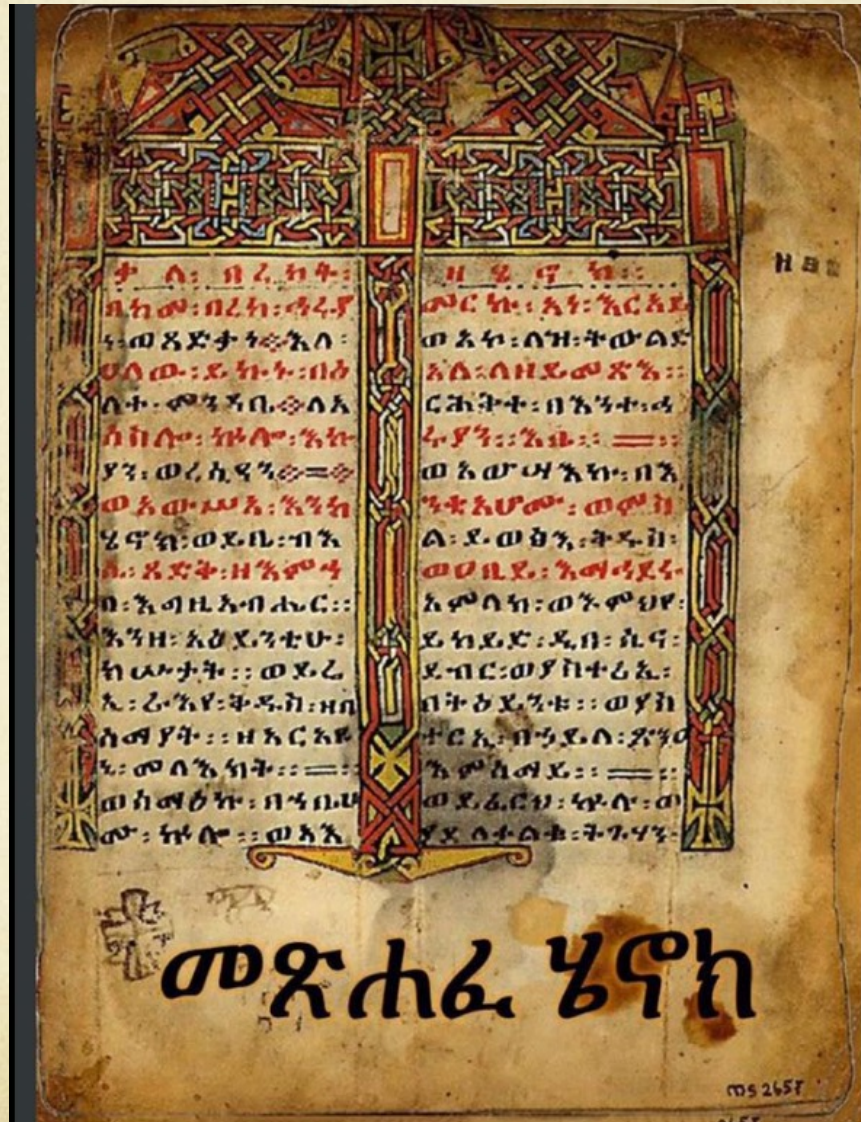 ቃለ፡ በረከት፡
በከመ፡ባረከ፡ኅሩያ
ነ፡ወጻድቃነ፨እለ፡
ሀለው፡ይኩኑ፡በዕ
ለተ፡ምንዳቤ፨ለአ
ሰስሎ፡ኵሎ፡እኩ
ያን፡ወረሲዓን፨=፨
ወአውሥአ፡እንከ
ሄኖክ፡ወይቤ፡ብእ
ሲ፡ጻድቅ፡ዘእምኀ
በ፡እግዚአብሔር፡፡
እንዘ፡አዕይንቲሁ፡
ከሡታት፡፡ወይሬ
ኢ፡ራእየ፡ቅዱስ፡ዘበ
ሰማያት፡፡ዘአርአዩ
ኒ፡መላእክት፡፡=፡
ወሰማዕኩ፡በኀቤሆ
ሙ፡ኵሎ፡፡ወአእ
ዘሄኖክ፡፡
መርኩ፡አነ፡እርአይ
ወአኮ፡ለዝ፡ትውልድ
አላ፡ለዘይመጽእ፡፡
ርሑቃት፡በእንተ፡ኅ
ሩያን፡፡እቤ፡፡=፡፡
ወአውሣእኩ፡በእ
ንቲአሆሙ፡ወምስ
ል፡ይወፅእ፡ቅዱስ፡
ወዐቢይ፡እማኅደሩ
አምላክ፡ወእምህየ፡
ይከይድ፡ዲበ፡ሲና፡
ደብር፡ወያስተርኢ፡
በትዕይንቱ፡፡ወያስ
ተርኢ፡በኃይለ፡ጽንዑ
እምሰማይ፡፡=፡፡
ወይፈርህ፡ኵሉ፡ወ
ያድለቀልቁ፡ትጉሃን
መጽሐፈ ሄኖክ
MS 2657